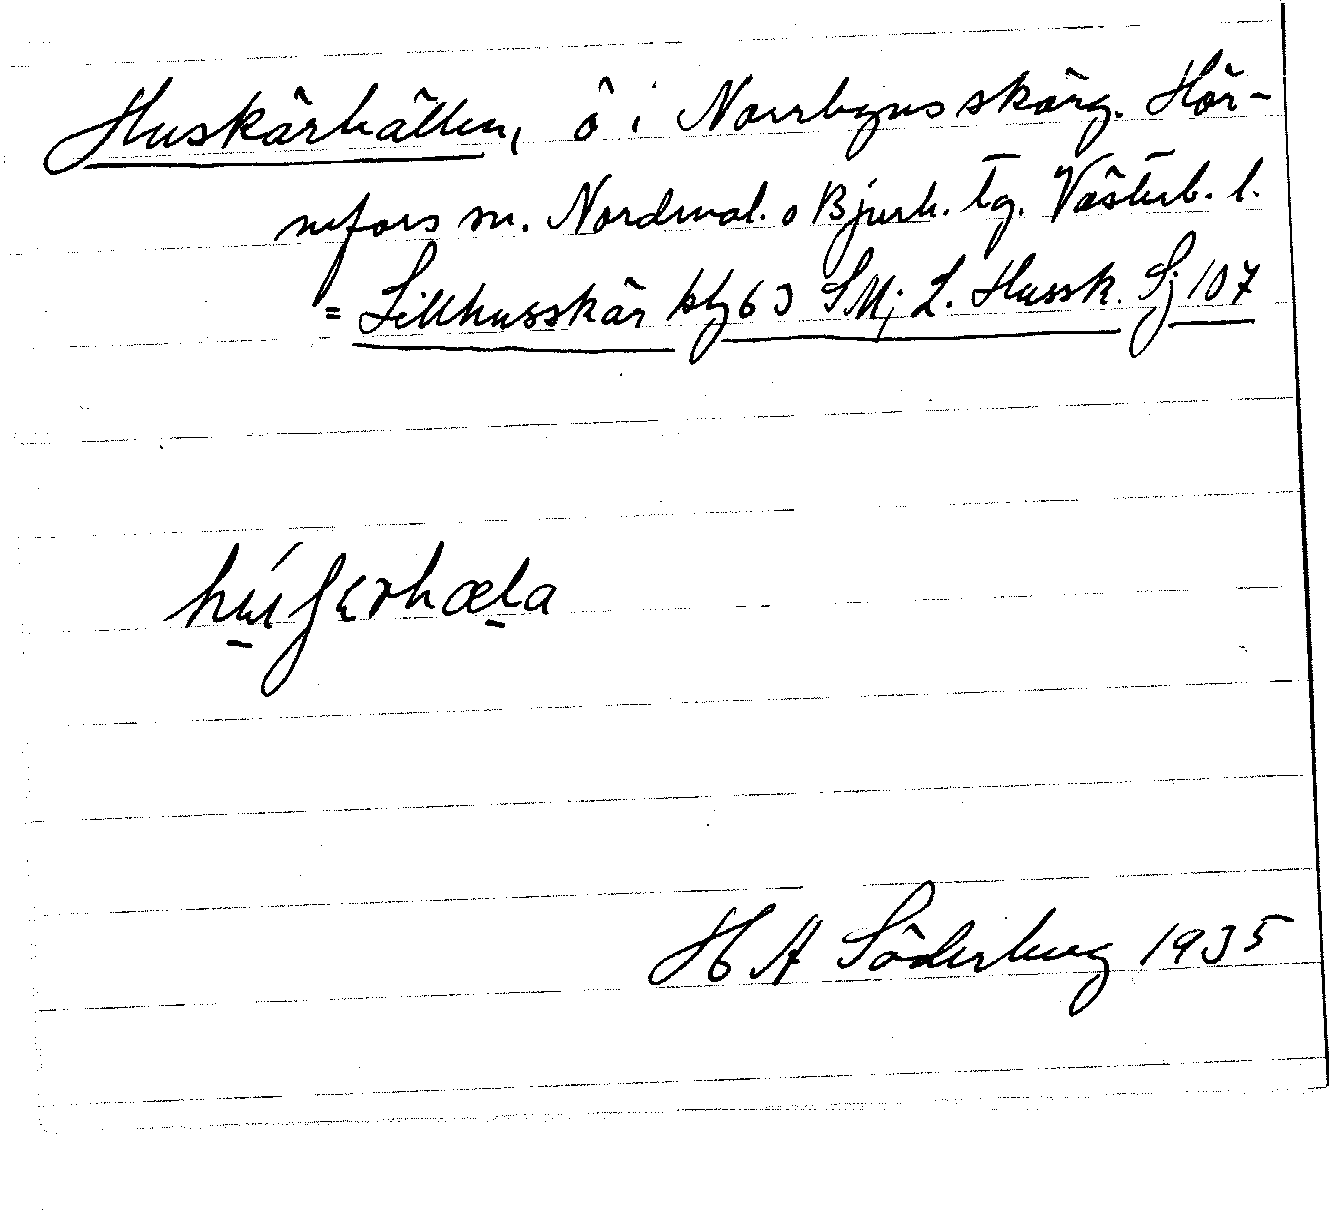 Huskärhällen, ö i Norrbyns skärg. Hör-
nefors sn. Nordmal. o Bjurh. tg. Västerb. l.
= Lillhusskär kbl 63 SM; L. Hussk. Sj 107
H A Söderberg 1935